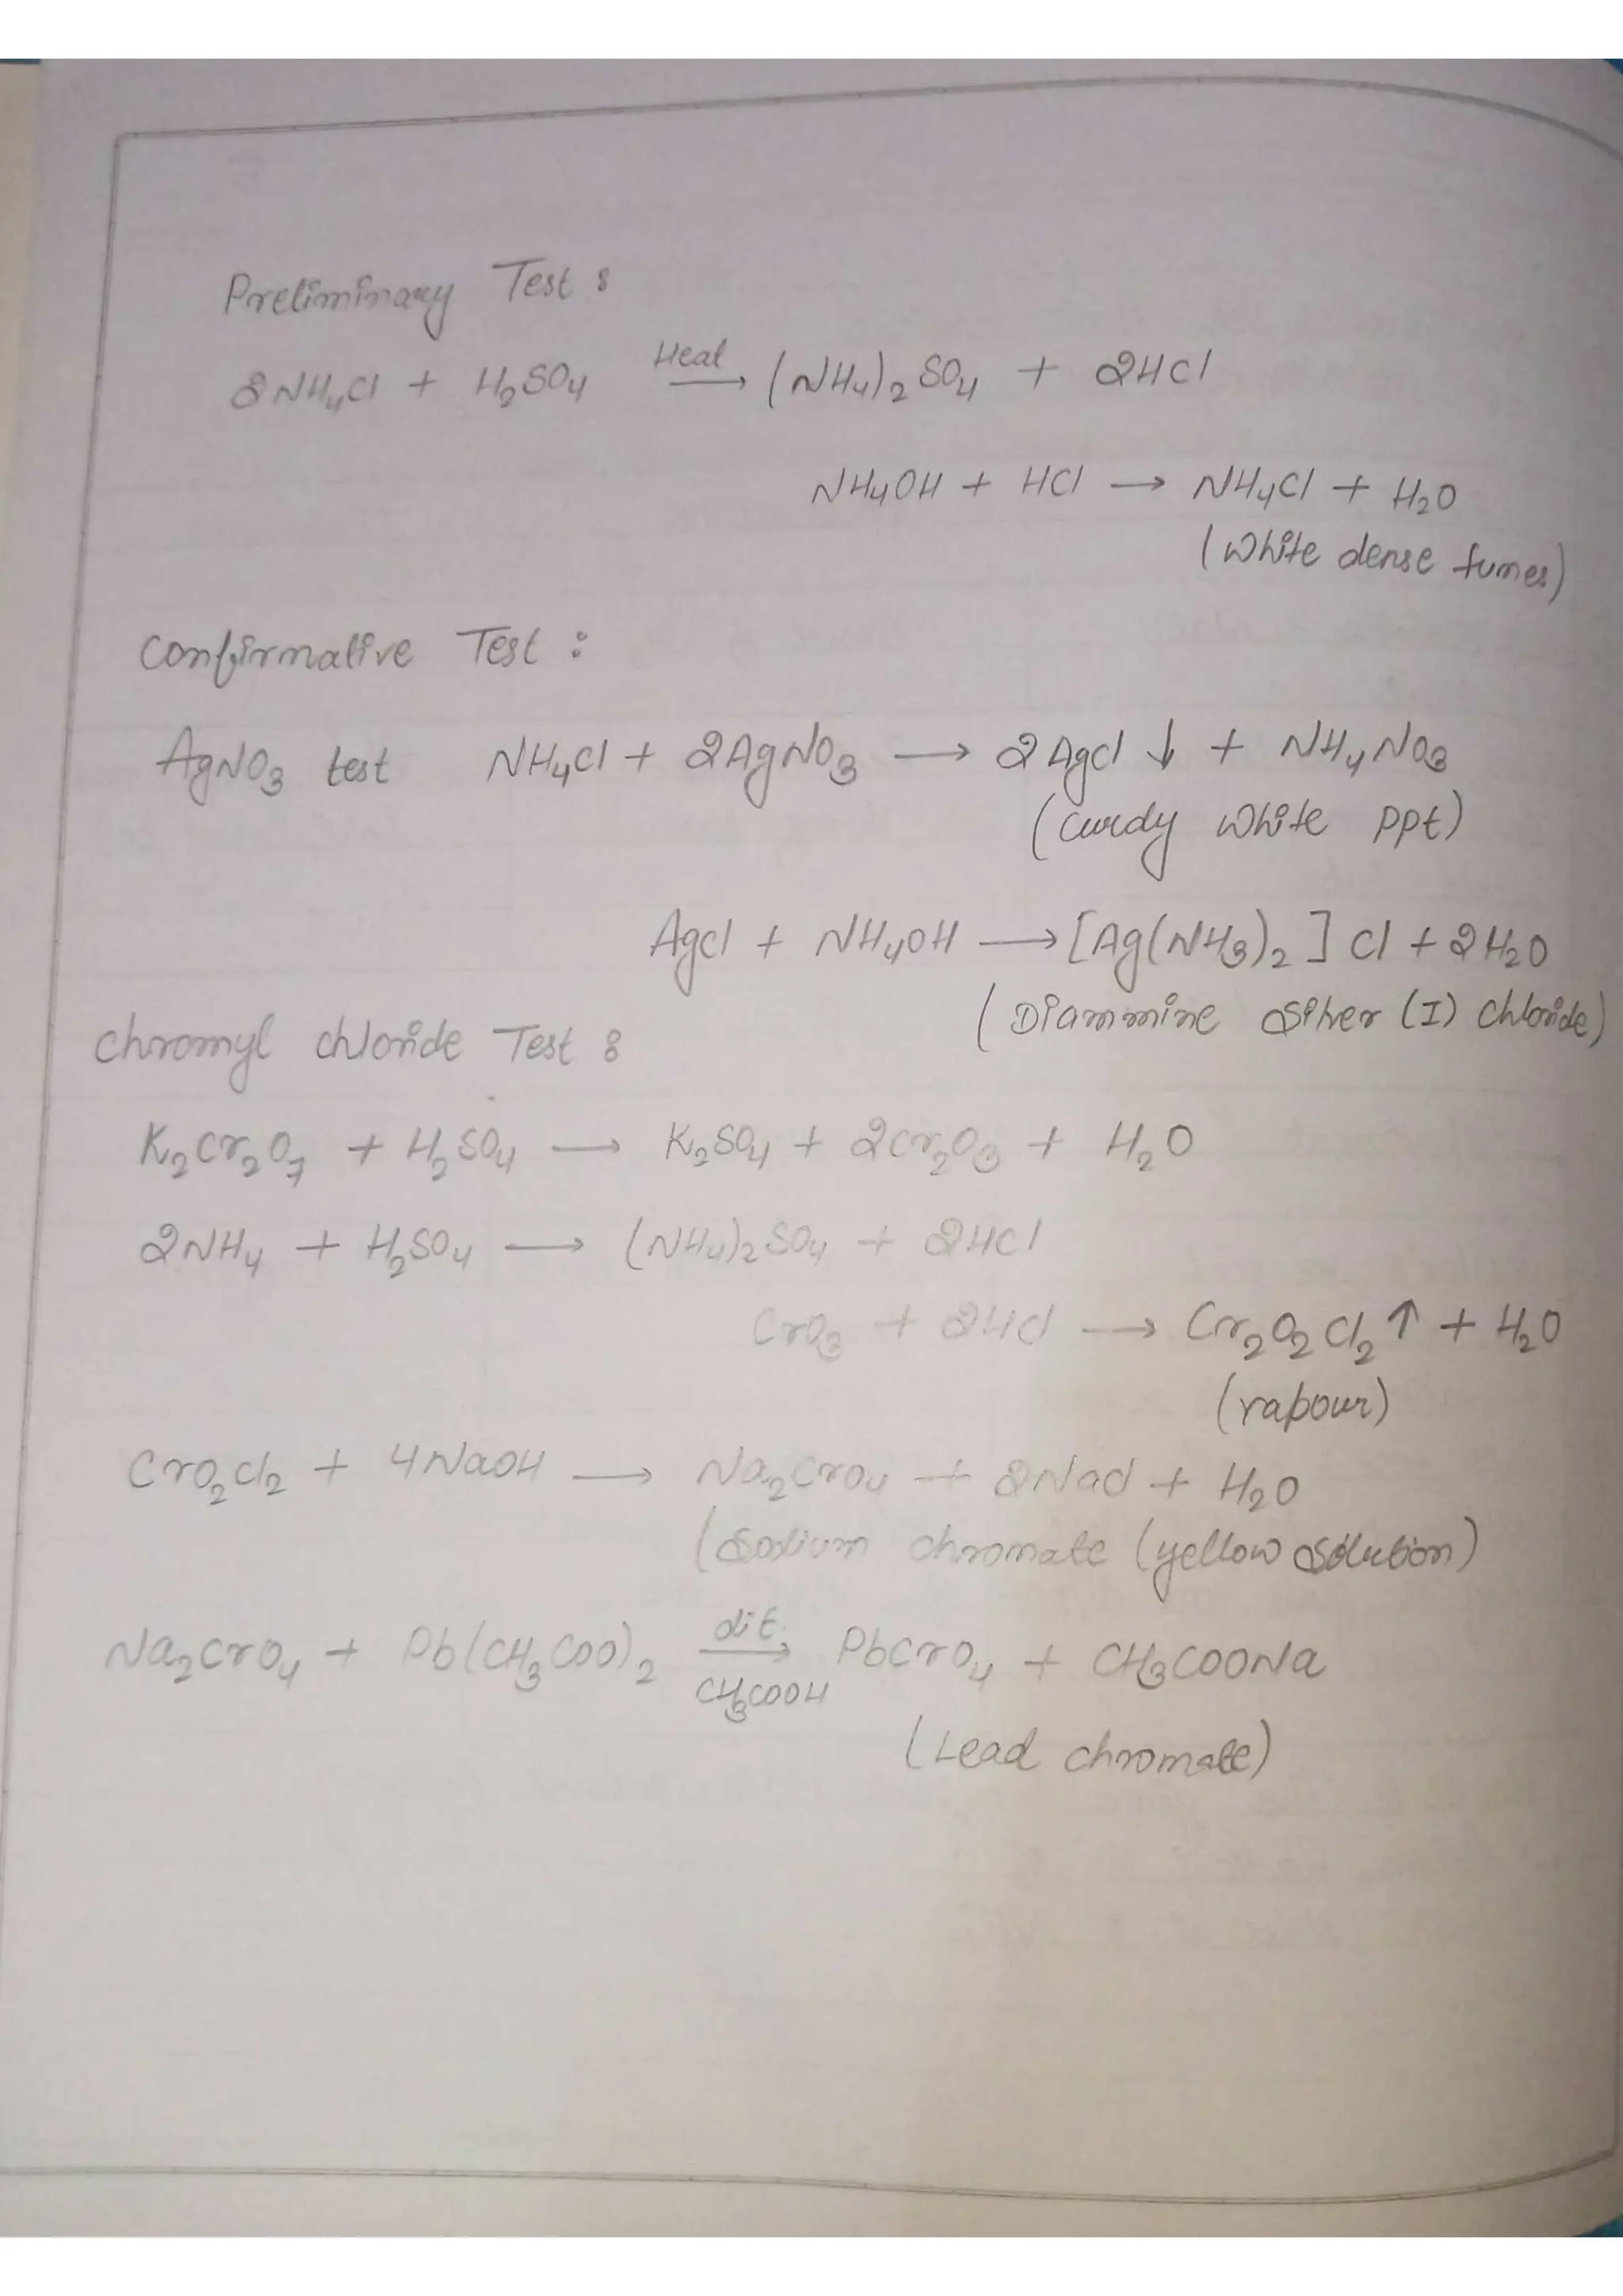 Preliminary Test :
2NH₄Cl + H₂SO₄ Heat → (NH₄)₂SO₄ + 2HCl
NH₄OH + HCl → NH₄Cl + H₂O
(White dense fumes)
Confirmative Test :
AgNO₃ test NH₄Cl + 2AgNO₃ → 2AgCl ↓ + NH₄NO₃
(Curdy white ppt)
AgCl + NH₄OH → [Ag(NH₃)₂]Cl + 2H₂O
(Diammine Silver (I) chloride)
Chromyl chloride Test :
K₂Cr₂O₇ + H₂SO₄ → K₂SO₄ + 2Cr₂O₃ + H₂O
2NH₄ + H₂SO₄ → (NH₄)₂SO₄ + 2HCl
CrO₃ + 2HCl → Cr₂O₂Cl₂↑ + H₂O
(vapour)
CrO₂Cl₂ + 4NaOH → Na₂CrO₄ + 2NaCl + H₂O
(Sodium chromate (yellow solution)
Na₂CrO₄ + Pb(CH₃COO)₂ dil. → CH₃COOH PbCrO₄ + CH₃COONa
(Lead chromate)